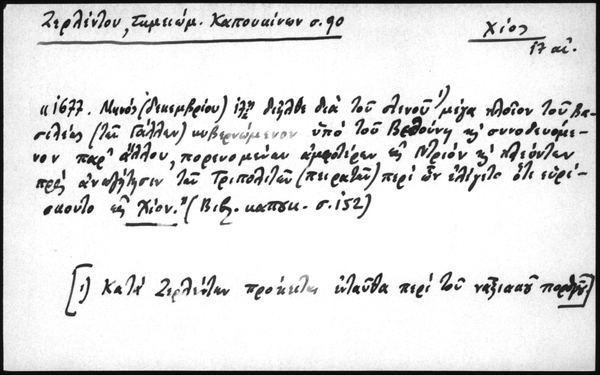 Ζερλέντου, Σημειώμ. Καπουκίνων σ. 90
Χίος
17 αἰ.
"1677. Μηνός (Δεκεμβρίου) διῆλθε διὰ τοῦ στενοῦ 1) μέγα πλοῖον τοῦ βα-
σιλέως (τῶν Γάλλων) κυβερνώμενον ὑπό τοῦ Βεθούνη κ συνοδευόμε-
νον παρ' ἄλλου, πορευομένων ἀμφοτέρων εἰς κ πλεόντων
πρός ἀναζήτησιν τῶν Τριπολιτῶν (πειρατῶν) περί ὧν ἐλέγετο ὅτι εὑρί-
σκοντο εἰς Χίον." (Βιβλ. καπουκ. σ. 152)
[1) Κατά Ζερλέντην πρόκειται ἐνταῦθα περί τοῦ ναξιακοῦ πορθμοῦ]